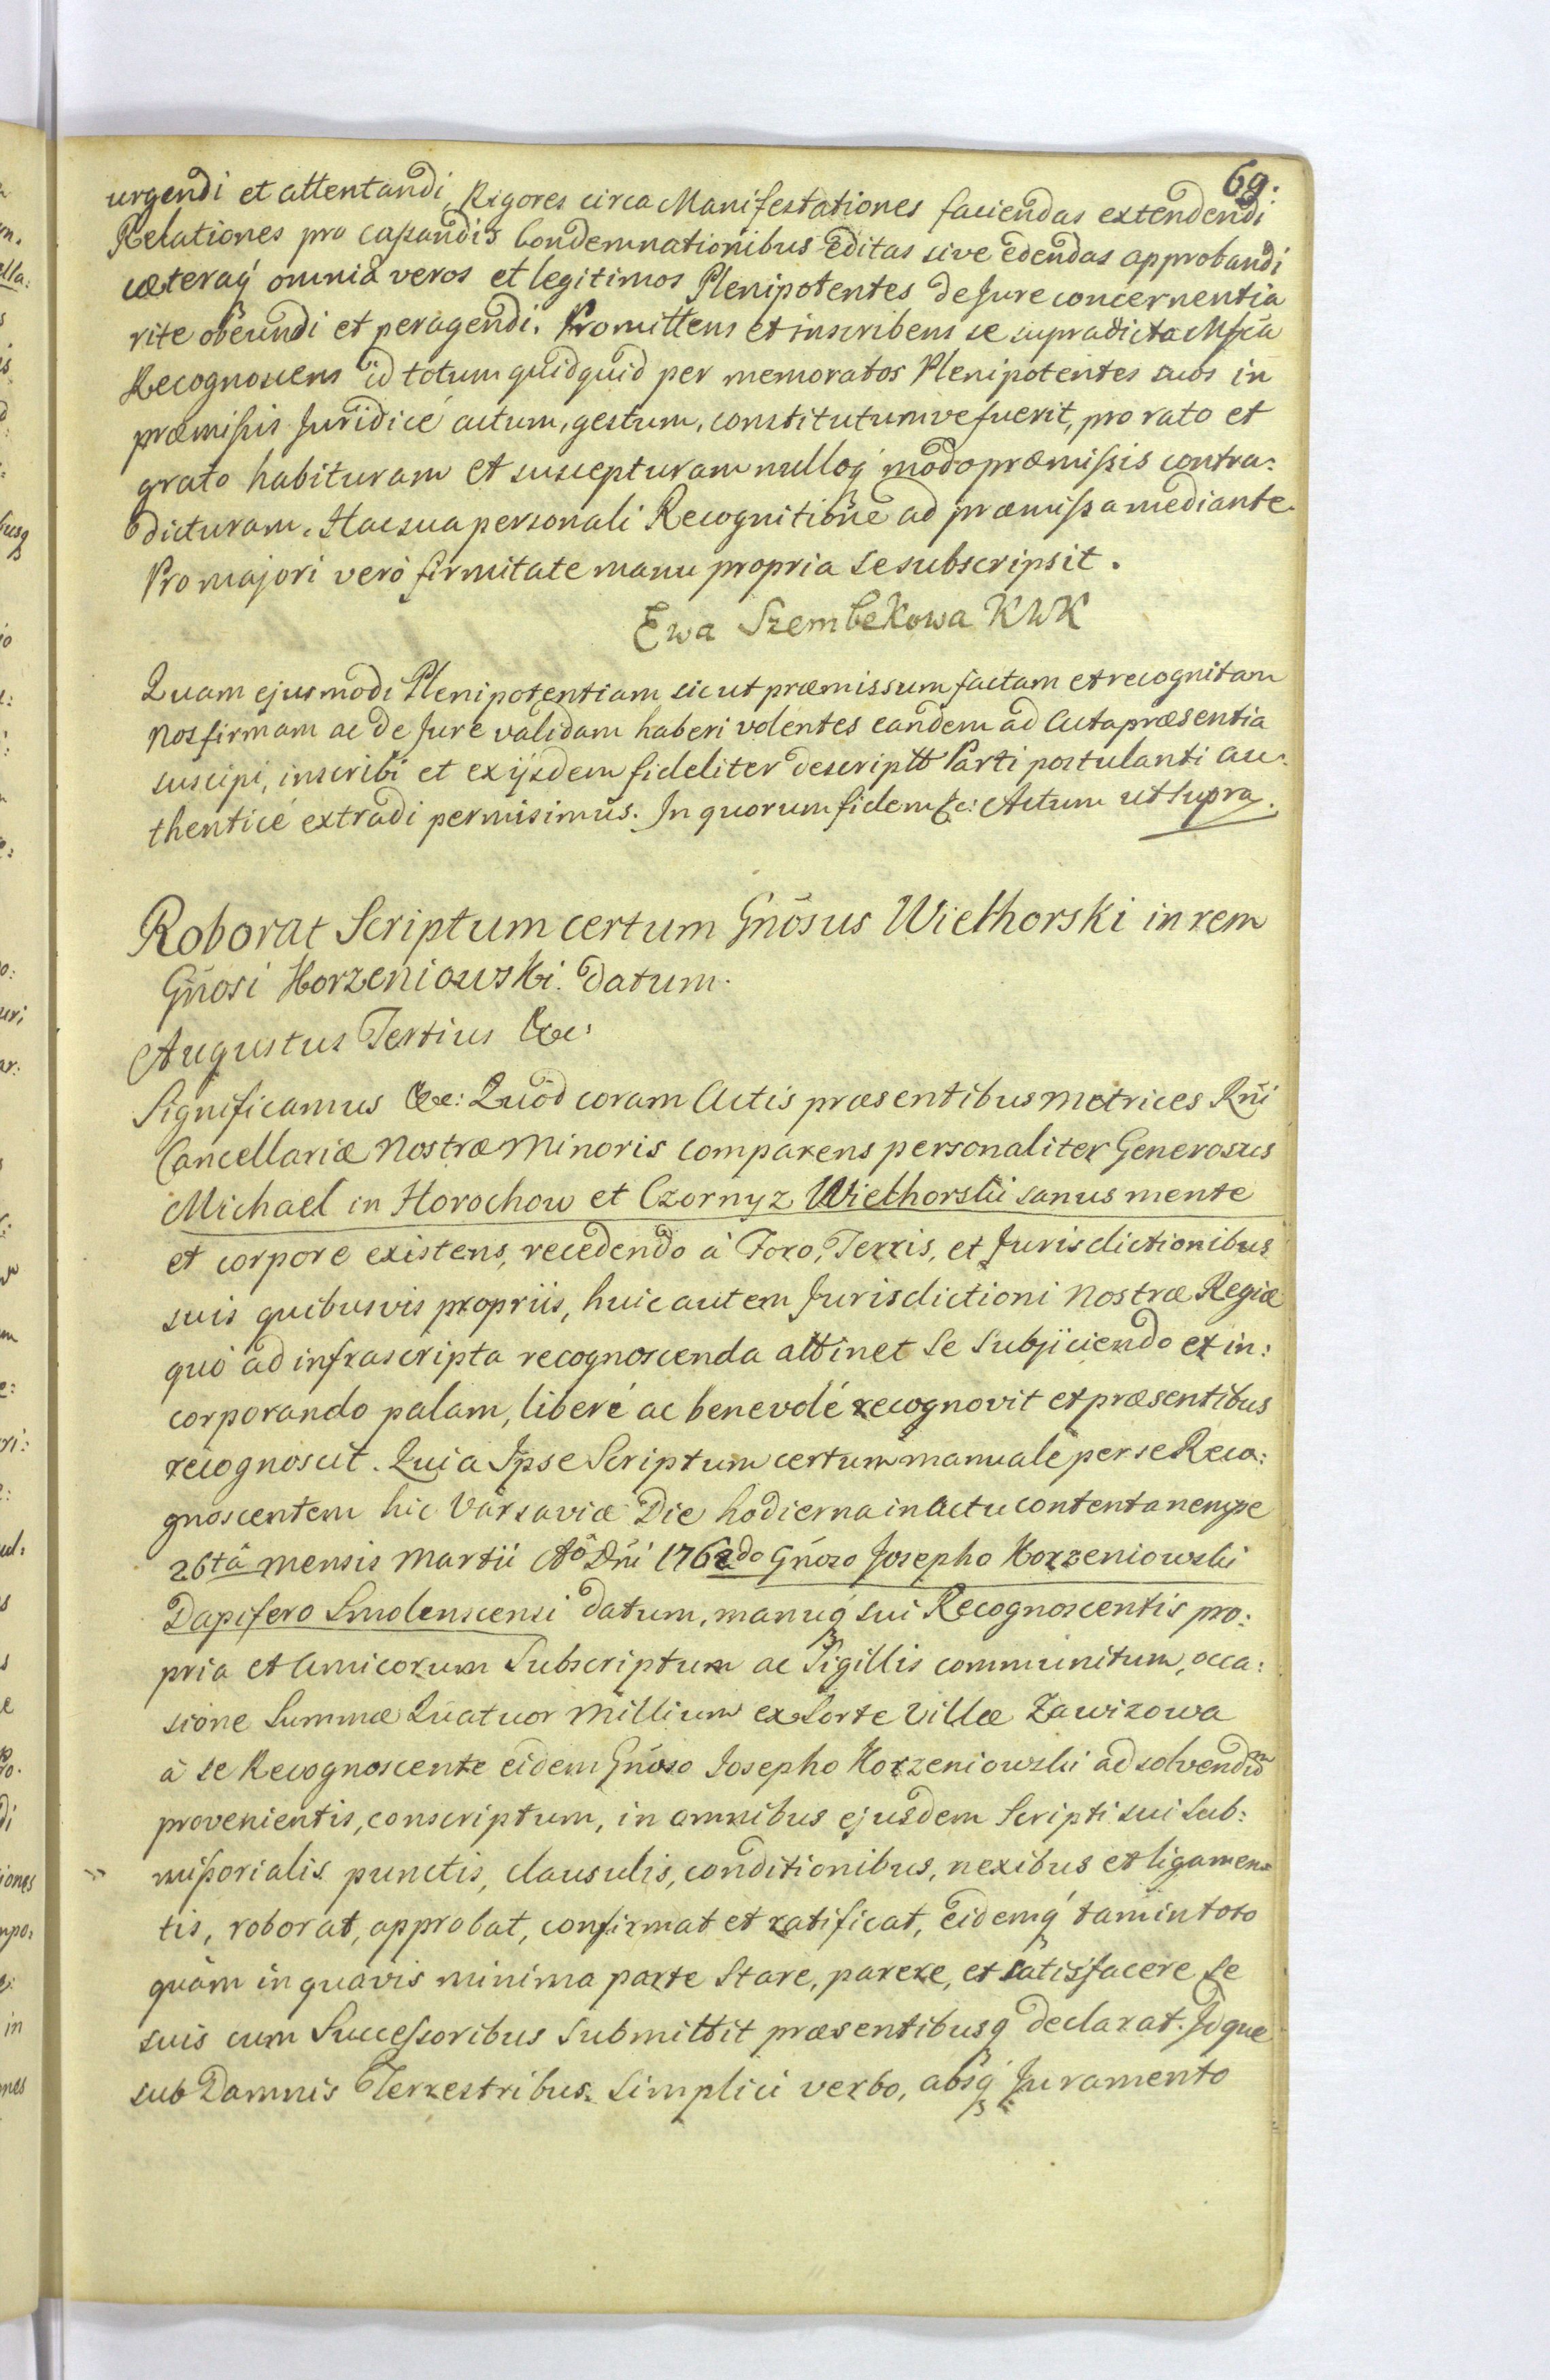 69.
urgendi et attentandi, Rigores circa Manifestationes faciendas extendendi
Relationes pro cassandis Condemnationibus editas sive edendas approbandi
cæteraq́ omnia veros et legitimos Plenipotentes de Jure concernentia
rite obeundi et peragendi. Promittens et inscribens se supradicta Mfca
Recognoscens id totum quidquid per memoratos Plenipotentes suos in
præmissis Juridicé actum, gestum, constitutumve fuerit, pro rato et
grato habituram et suscepturam nulloq́ modo præmissis contra:
dicturam. Hac sua personali Recognitione ad præmissa mediante.
Pro majori veró firmitate manu propria se subscripsit.
Ewa Szembekowa KWK
Quam ejusmodi Plenipotentiam sicut præmissum factam et recognitam
nos firmam ac de Jure validam haberi volentes eandem ad Acta præsentia
suscipi, inscribi et ex ijsdem fideliter descriptt Parti postulanti au:
thenticé extradi permisimus. In quorum fidem &c: Actum ut supra.
Roborat Scriptum certum Gñosus Wielhorski in rem
Gñosi Korzeniowski datum.
Augustus Tertius &c:
Significamus &c: Quod coram Actis præsentibus Metrices Rñi
Cancellariæ Nostræ Minoris comparens personaliter Generosus
Michael in Horochow et Czornyz Wielhorski sanus mente
et corpore existens, recedendo á Foro, Terris, et Jurisdictionibus
suis quibusvis propriis, huic autem Jurisdictioni Nostræ Regiæ
quó ad infrascripta recognoscenda attinet se subjiciendo et in:
corporando palam, liberé ac benevolé recognovit et præsentibus
recognoscit. Quia Ipse Scriptum certum manuale per se Reco:
gnoscentem hic Varsaviæ Die hodierna in Actu contenta nempe
26tâ mensis Martii Aõ Dñi 1762do Gñoso Josepho Korzeniowski
Dapifero Smolenscensi datum, manuq́ sui Recognoscentis pro:
pria et Amicorum Subscriptum ac Sigillis communitum, occa:
sione Summæ Quatuor Millium ex Sorte Villæ Zawizowa
á se Recognoscente eidem Gñoso Josepho Korzeniowski ad solvendum
provenientis, conscriptum, in omnibus ejusdem Scripti sui Sub:
missorialis punctis, clausulis, conditionibus, nexibus et ligamen:
tis, roborat, approbat, confirmat et ratificat, eidemq́ tam in toto
quàm in quavis minima parte stare, parere, et satisfacere se
suis cum Successoribus submittit præsentibusq́ declarat. Idque
sub Damnis Terrestribus. simplici verbo, absq́ Juramento